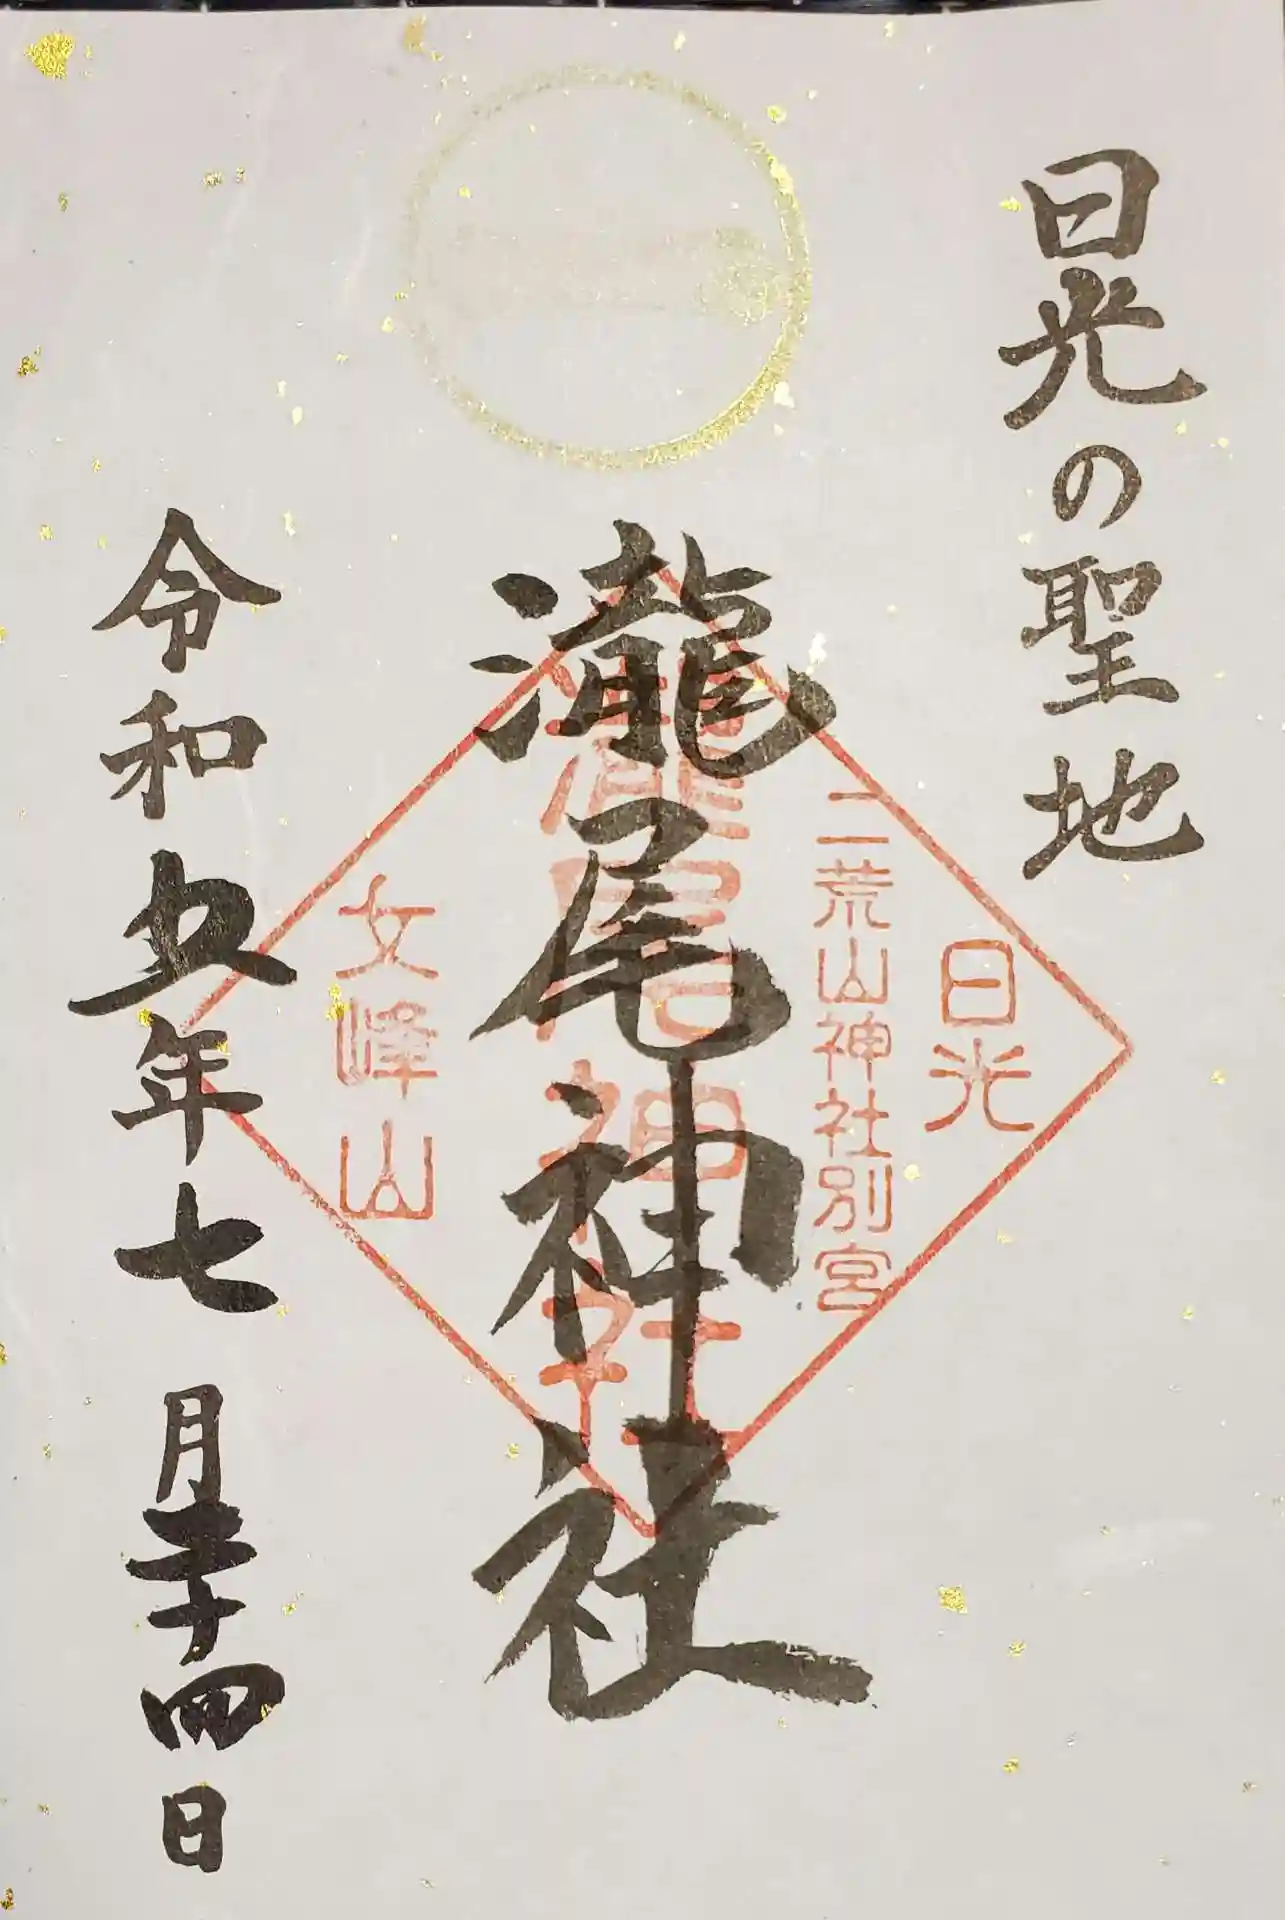 日光の聖地
瀧尾神社
令和五年七月二十四日
日光
二荒山神社別宮
瀧尾神社
女峰山